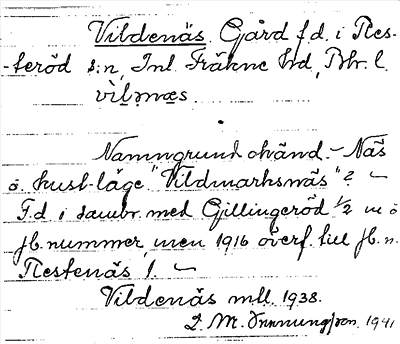 Vildenäs Gård f.d. i Res-
-teröd s:n, Inl. Fräkne hd, Bhr. l.
vilmæs.
Namngrund okänd. - Näs
o. kust-läge "Vildmarksnäs"?
F.d. i sambr. med Gjillingeröd 1/2 m o
jb. nummer, men 1916 överf. till jb. n.
Restenäs 1.
Vildenäs mtl. 1938.
1941